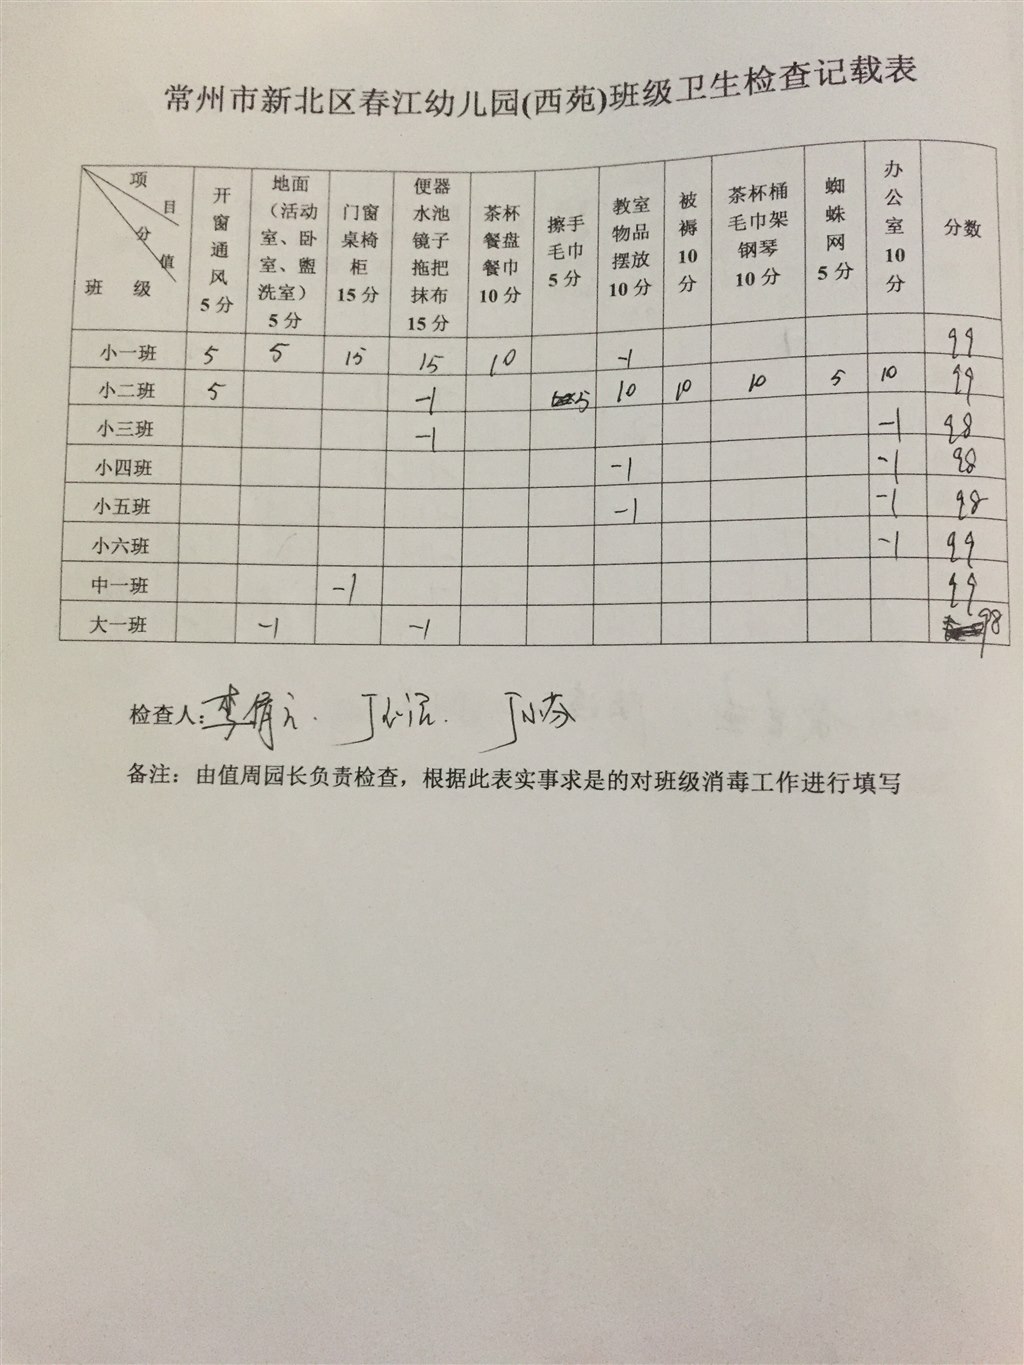 常州市新北区春江幼儿园(西苑)班级卫生检查记载表
项目 分值 班级 开窗通风5分 地面（活动室、卧室、盥洗室）5分 门窗桌椅柜15分 便器水池镜子拖把抹布15分 茶杯餐盘餐巾10分 擦手毛巾5分 教室物品摆放10分 被褥10分 茶杯桶毛巾架钢琴10分 蜘蛛网5分 办公室10分 分数
小一班 5 5 15 15 10 -1 99
小二班 5 -1 5 10 10 10 5 10 99
小三班 -1 -1 98
小四班 -1 -1 98
小五班 -1 -1 98
小六班 -1 99
中一班 -1 99
大一班 -1 -1 98
检查人:
备注：由值周园长负责检查，根据此表实事求是的对班级消毒工作进行填写